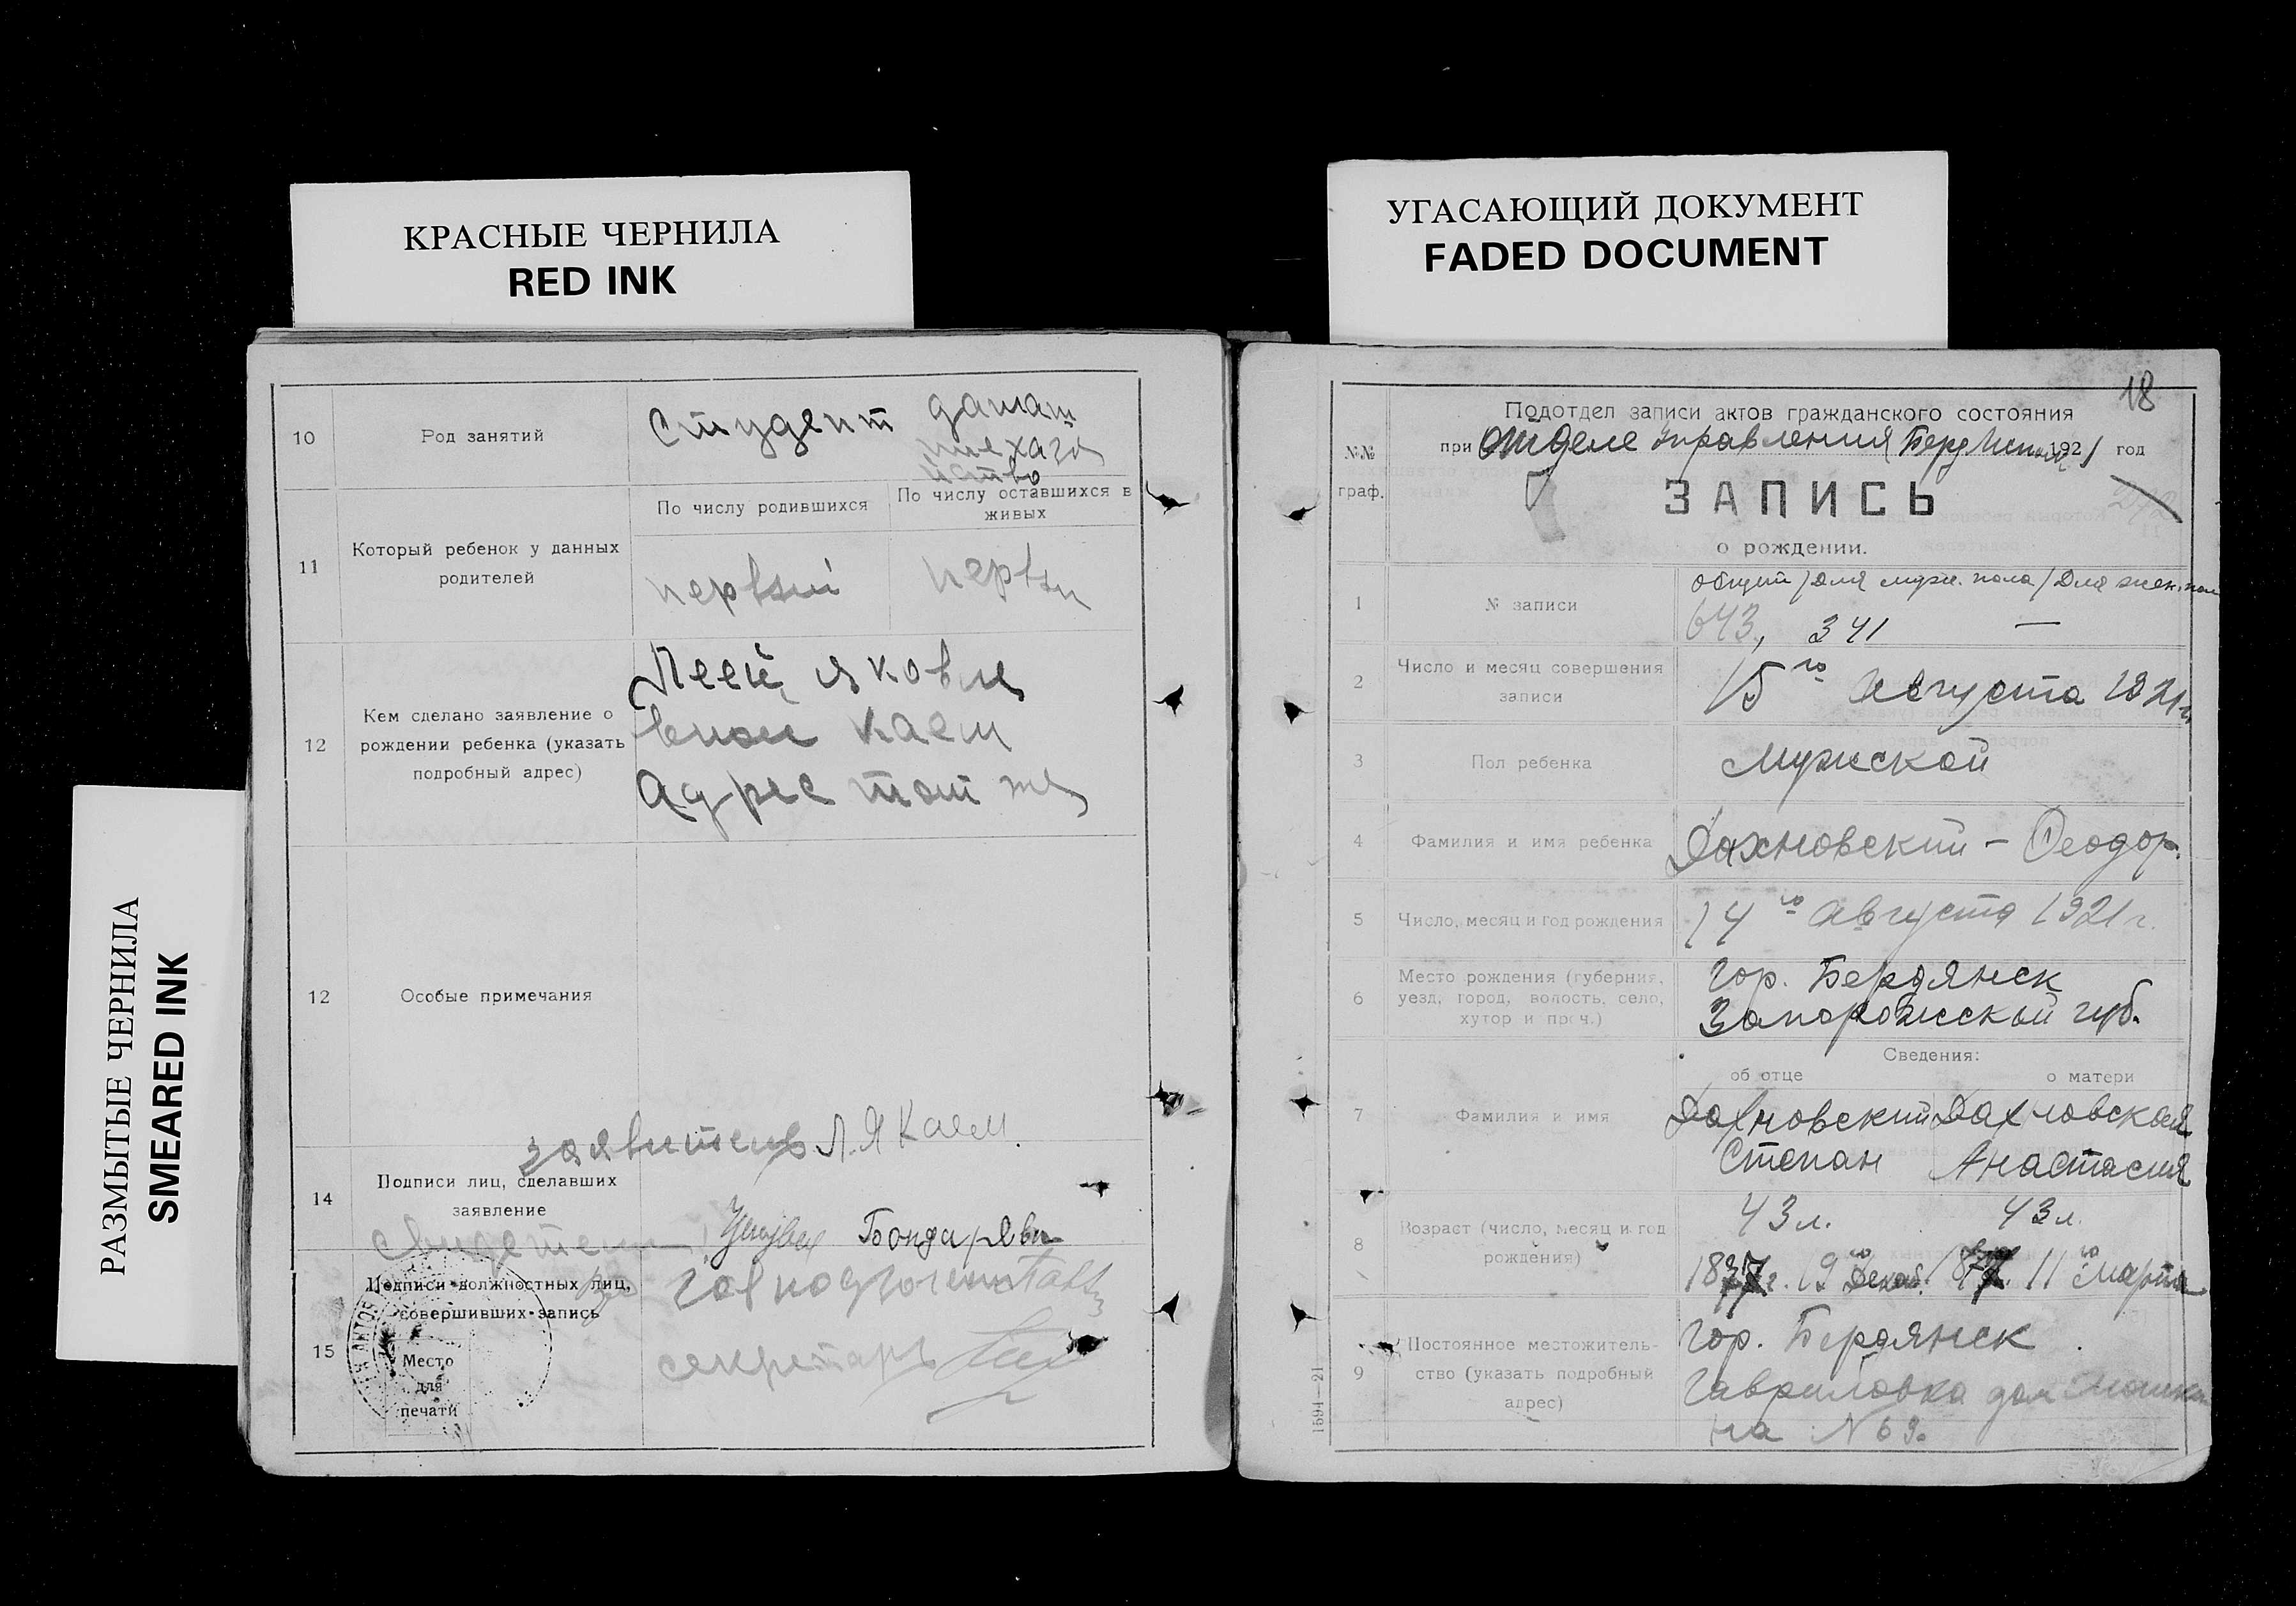 КРАСНЫЕ ЧЕРНИЛА
RED INK
УГАСАЮЩИЙ ДОКУМЕНТ
FADED DOCUMENT
РАЗМЫТЫЕ ЧЕРНИЛА
SMEARED INK
10 Род занятий студент
11 Который ребенок у данных родителей
По числу родившихся
По числу оставшихся в живых
первый
первы
12 Кем сделано заявление о рождении ребенка (указать подробный адрес)
Леей яковле
вной Каем
Адрес тот же
12 Особые примечания
заявитель Л. Я Каем.
14 Подписи лиц, сделавших заявление
свидетели
Бондарева
15 Подписи должностных лиц, совершивших запись
Место
для
печати
секретарь
18
Подотдел записи актов гражданского состояния
при Отделе Управления 1921 год
№№
граф.
ЗАПИСЬ
о рождении.
общий / Для муж. пола / Для жен. пол
1 № записи 643, 341 —
2 Число и месяц совершения записи
15го Августа 1921 г.
3 Пол ребенка Мужской
4 Фамилия и имя ребенка Дахновский – Феодор.
5 Число, месяц и год рождения 14го Августа 1921 г.
6 Место рождения (губерния, уезд, город, волость, село, хутор и проч.)
гор. Бердянск
Запорожской губ.
Сведения:
об отце о матери
7 Фамилия и имя
Дахновский Дахновская
Степан Анастасия
8 Возраст (число, месяц и год рождения)
43 л. 43 л.
19го Декаб. 11го Марта
9 Постоянное местожительство (указать подробный адрес)
гор. Бердянск
Гавриловка дом
на № 69.
1591—21